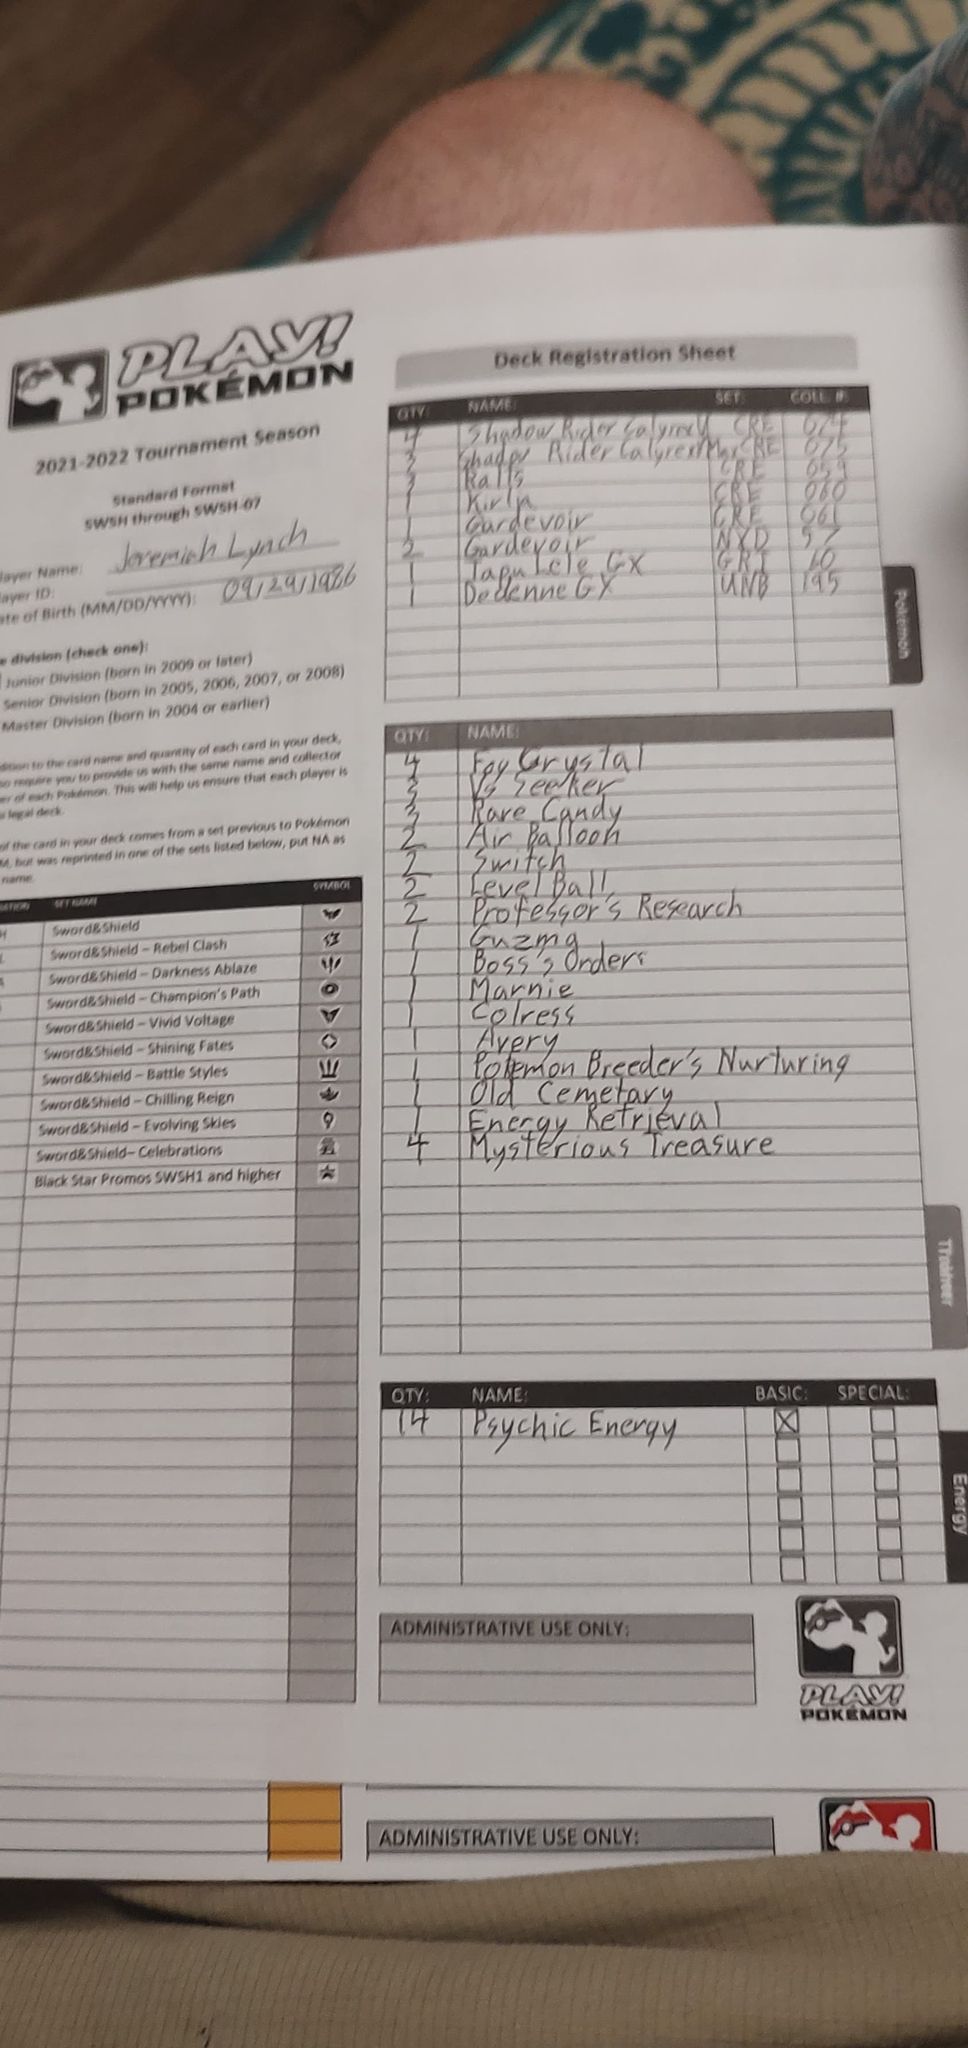 PLAY!
POKÉMON
2021-2022 Tournament Season
Standard Format
SWSH through SWSH-07
layer Name: Jeremiah Lynch
layer ID:
ate of Birth (MM/DD/YYYY): 09/29/1986
e division (check one):
Junior Division (born in 2009 or later)
Senior Division (born in 2005, 2006, 2007, or 2008)
Master Division (born in 2004 or earlier)
dition to the card name and quantity of each card in your deck,
so require you to provide us with the same name and collector
er of each Pokémon. This will help us ensure that each player is
legal deck.
of the card in your deck comes from a set previous to Pokémon
M, but was reprinted in one of the sets listed below, put NA as
name.
SET NAME SYMBOL
Sword&Shield
Sword&Shield – Rebel Clash
Sword&Shield – Darkness Ablaze
Sword&Shield – Champion's Path
Sword&Shield – Vivid Voltage
Sword&Shield – Shining Fates
Sword&Shield – Battle Styles
Sword&Shield – Chilling Reign
Sword&Shield – Evolving Skies
Sword&Shield– Celebrations
Black Star Promos SWSH1 and higher
Deck Registration Sheet
QTY: NAME: SET: COLL #:
4 Shadow Rider Calyrex V CRE 074
3 Shadow Rider Calyrex VMax CRE 075
3 Ralts CRE 059
1 Kirlia CRE 060
1 Gardevoir CRE 061
2 Gardevoir NXD 57
1 Tapu Lele GX GRI 60
1 Dedenne GX UNB 195
Pokemon
QTY: NAME:
4 Fog Crystal
3 Vs Seeker
3 Rare Candy
2 Air Balloon
2 Switch
2 Level Ball
2 Professor's Research
1 Guzma
1 Boss's Orders
1 Marnie
1 Colress
1 Avery
1 Pokemon Breeder's Nurturing
1 Old Cemetary
1 Energy Retrieval
4 Mysterious Treasure
Trainer
QTY: NAME: BASIC: SPECIAL:
14 Psychic Energy X
Energy
ADMINISTRATIVE USE ONLY:
PLAY!
POKÉMON
ADMINISTRATIVE USE ONLY: